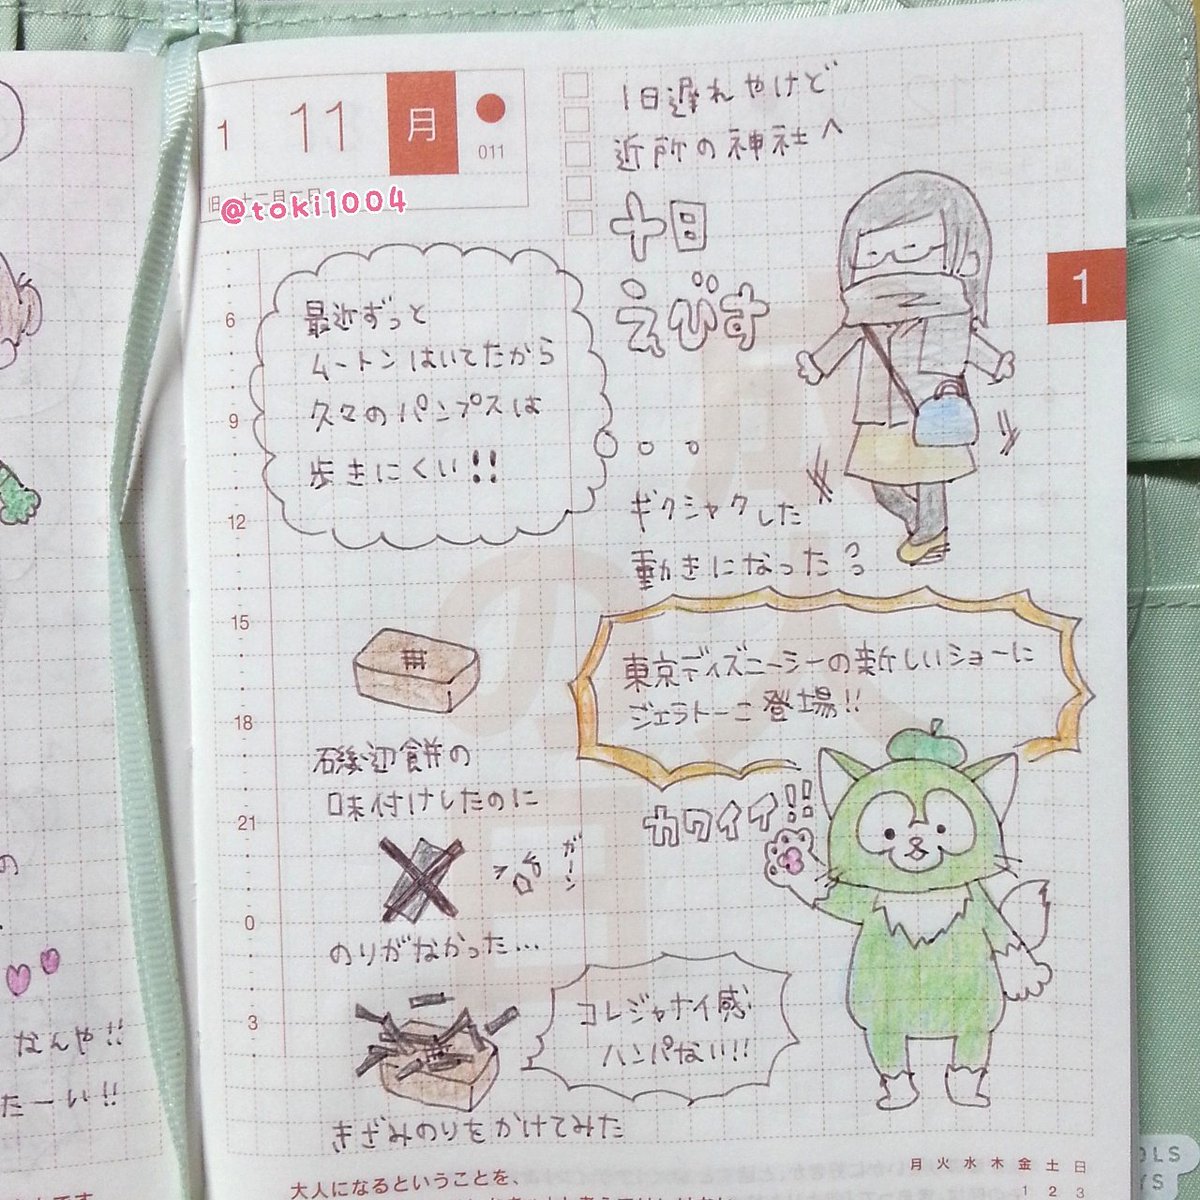 1 11 月
011
@toki1004
1日遅れやけど
近所の神社へ
十日
えびす
1
最近ずっと
ムートンはいてたから
久々のパンプスは
歩きにくい!!
ギクシャクした
動きになった
6
9
12
15
18
21
0
3
東京ディズニーシーの新しいショーに
ジェラトーニ登場!!
カワイイ!!
磯辺餅の
味付けしたのに
ガーン
のりがなかった…
コレジャナイ感
ハンパない!!
きざみのりをかけてみた
大人になるということを、
月 火 水 木 金 土 日
1 2 3
の
なんや!!
たーい!!